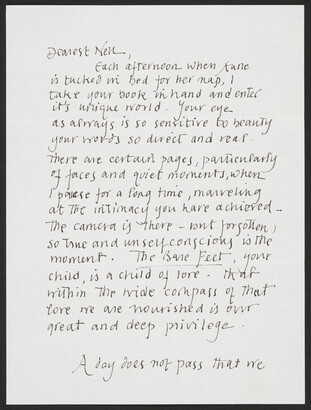 Dearest Nell,
Each afternoon when June
is tucked in bed for her nap, I
take your book in hand and enter
it's unique world. Your eye
as always is so sensitive to beauty
your words so direct and real.
There are certain pages, particularly
of faces and quiet moments, when
I pause for a long time, marveling
at the intimacy you have achieved –
The camera is there – but forgotten,
so true and unselfconscious is the
moment. The Bare Feet, your
child, is a child of love. That
within the wide compass of that
love we are nourished is our
great and deep privilege.
A day does not pass that we